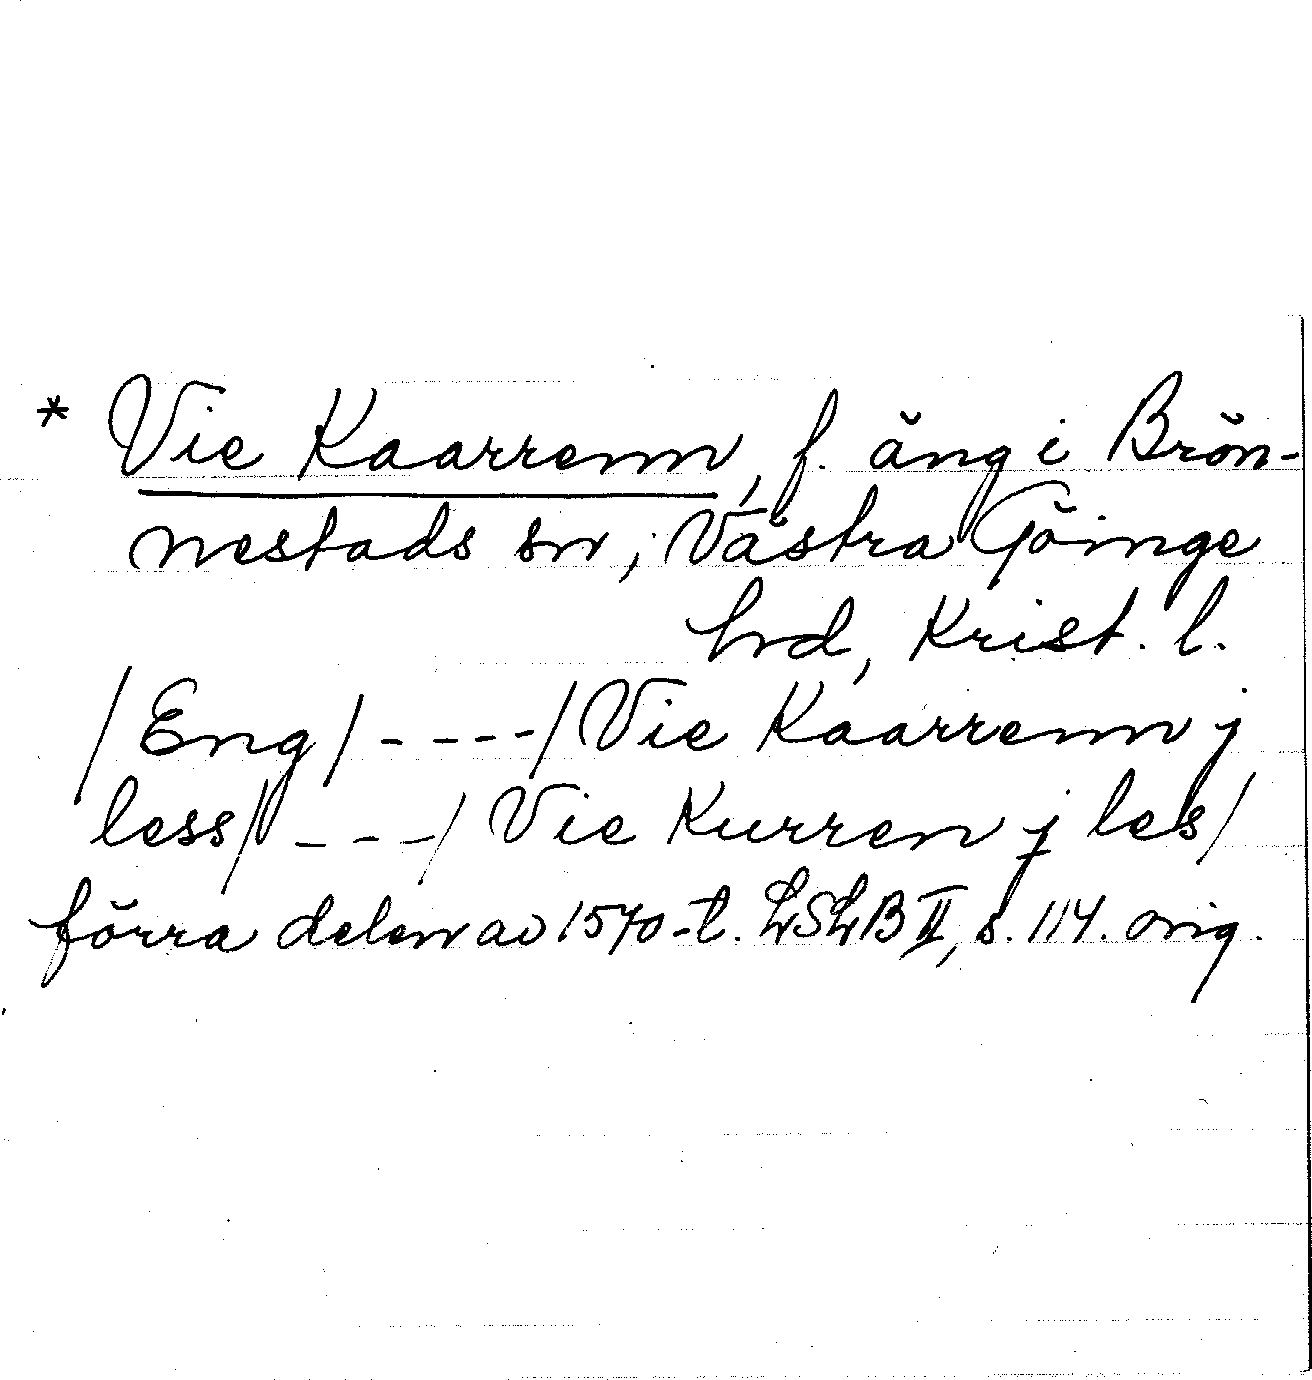 * Vie Kaarrenn, f. äng i Brön-
nestads sn, Västra Göinge
hrd, Krist. l.
/Eng/ ----/Vie Kaarrenn j
less/ ---/ Vie Kurren j les/
förra delen av 1570-t. LSLB II, s. 114. orig.